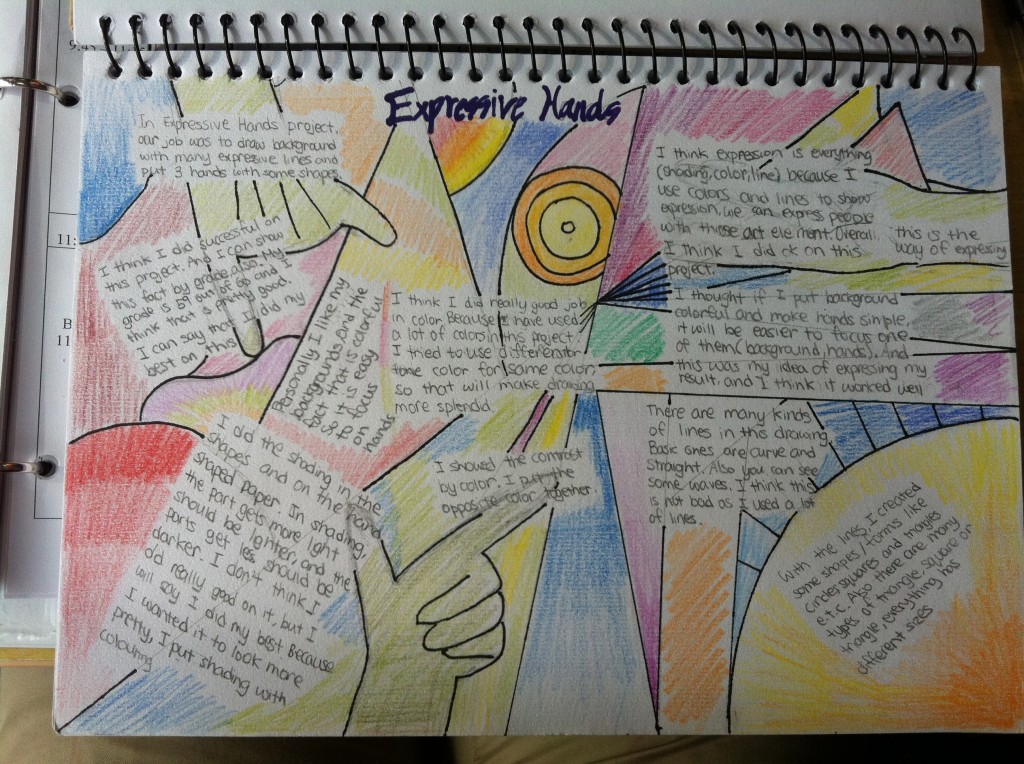 9:45
11:
B
11
Expressive Hands
In Expressive Hands project,
our job was to draw background
with many expresive lines and
put 3 hands with some shapes.
I think I did succesful on
this project. And I can show
this fact by grade also. My
grade is 59 out of 60 and I
think that is pretty good.
I can say that I did my
best on this
Personally I like my
backgrounds and the
fact that is colorful
so it is easy
to focus on
hands
I did the shading in the
shapes and on the hand
shaped paper. In shading,
the part gets more light
should be lighter, and the
parts get less should be
darker. I don't think I
did really good on it, but I
will say I did my best because
I wanted it to look more
pretty, I put shading with
colouring
I think I did really good job
in color. Because I have used
a lot of colors in this project.
I tried to use different
tone color for same color,
so that will make drawing
more splendid.
I showed the contrast
by color. I put the
opposite color together
I think expression is everything
(shading, color, line) because I
use colors and lines to show
expression, we can express people
with those art element. Overall
I think I did ok on this
project.
this is the
way of expressing
I thought if I put background
colorful and make hands simple,
it will be easier to focus one
of them (background, hands). And
this was my idea of expressing my
result. and I think it worked well
There are many kinds
of lines in this drawing
Basic ones are curve and
straight. Also you can see
some waves. I think this
is not bad as I used a lot
of lines.
With the lines, I created
some shapes/forms like
circle, squares and triangles
e.t.c. Also there are many
types of triangle, square or
triangle everything has
different sizes